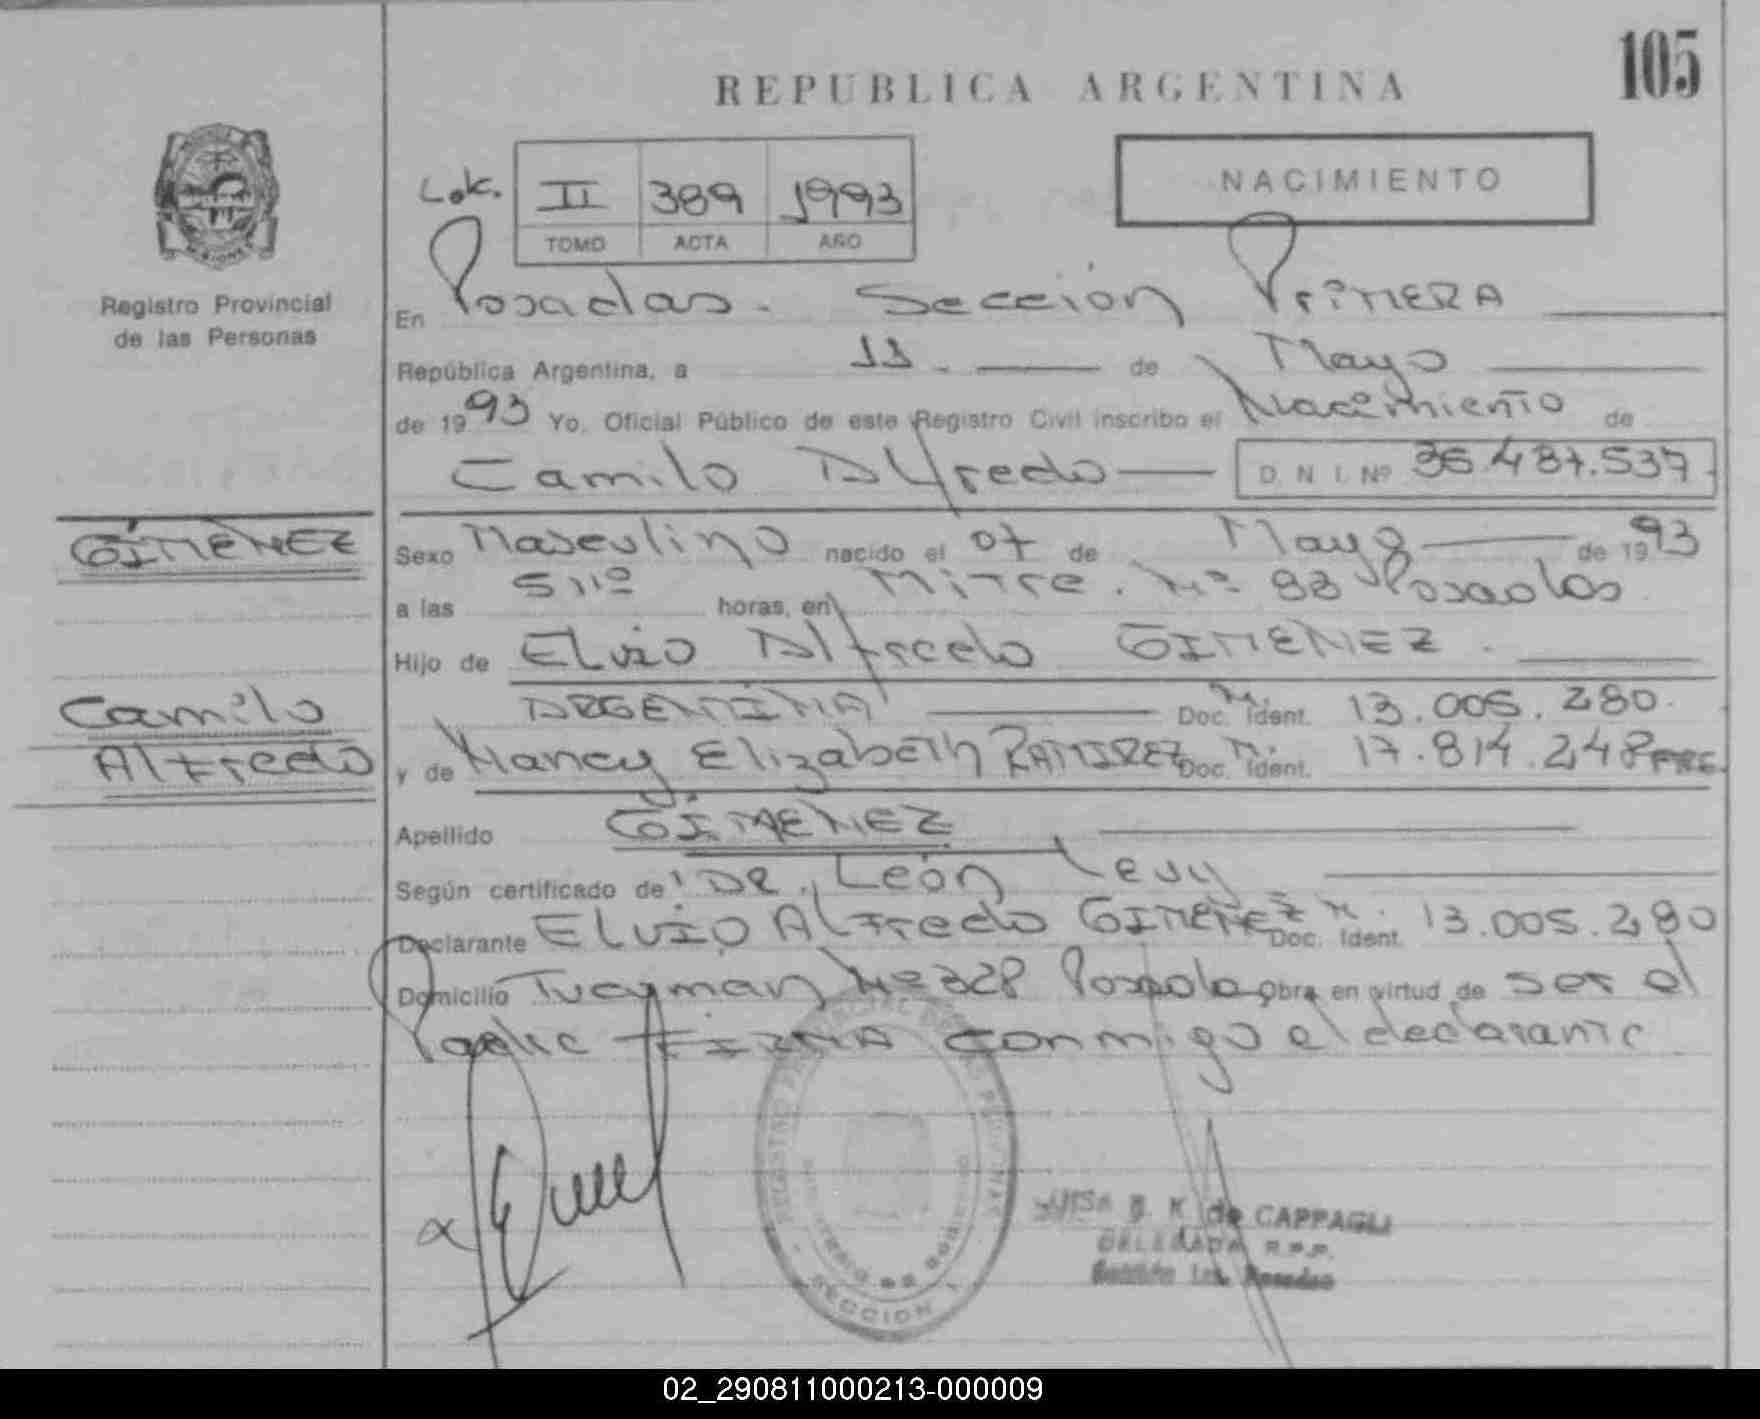 105
REPUBLICA ARGENTINA
NACIMIENTO
II 389 1993
TOMO ACTA AÑO
Registro Provincial
de las Personas
En Posadas. Sección Primera
República Argentina, a 11 de Mayo
de 1993 Yo, Oficial Público de este Registro Civil inscribo el Nacimiento de
Camilo Alfredo D. N. I. Nº 36.487.537
GIMENEZ
Camilo
Alfredo
Sexo Masculino nacido el 07 de Mayo de 1993
a las 5 11º horas, en Mitre. Nº 98 Posadas
Hijo de Elvio Alfredo GIMENEZ.
ARGENTINA Doc. Ident. M. 13.005.280.
y de Nancy Elizabeth RAMIREZ Doc. Ident. M. 17.814.248
Apellido GIMENEZ
Según certificado de: DR. León Levy
Declarante Elvio Alfredo GIMENEZ Doc. Ident. M. 13.005.280
Domicilio Tucuman Nº 328 Posadas Obra en virtud de ser el
Padre FIRMA conmigo el declarante
SECCION 1
B. K. de CAPPAGLI
DELEGADA R.P.P.
Sección 1ra. Posadas
02_290811000213-000009